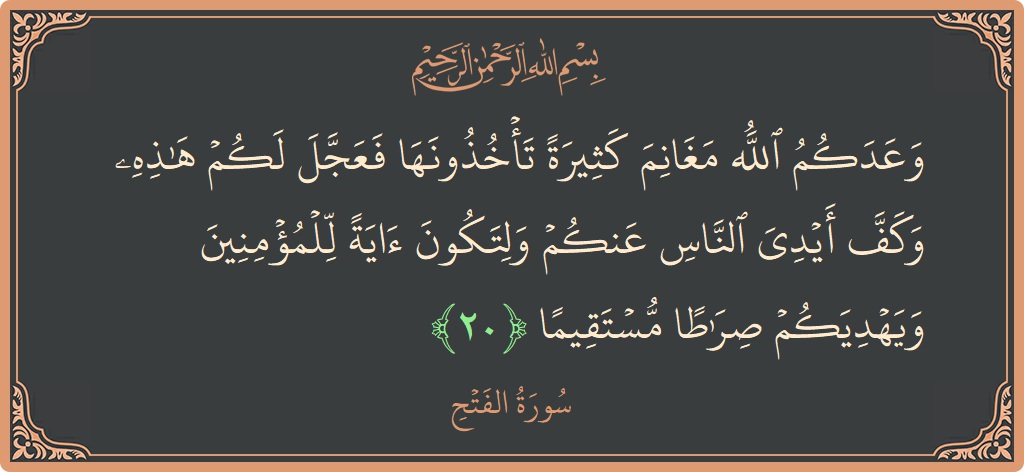 بِسْمِ اللهِ الرَّحْمٰنِ الرَّحِيْمِ
وَعَدَكُمُ ٱللَّهُ مَغَانِمَ كَثِيرَةً تَأْخُذُونَهَا فَعَجَّلَ لَكُمْ هَـٰذِهِۦ
وَكَفَّ أَيْدِىَ ٱلنَّاسِ عَنكُمْ وَلِتَكُونَ ءَايَةً لِّلْمُؤْمِنِينَ
وَيَهْدِيَكُمْ صِرَٰطًا مُّسْتَقِيمًا ﴿٢٠﴾
سُورَةُ الفَتْحِ